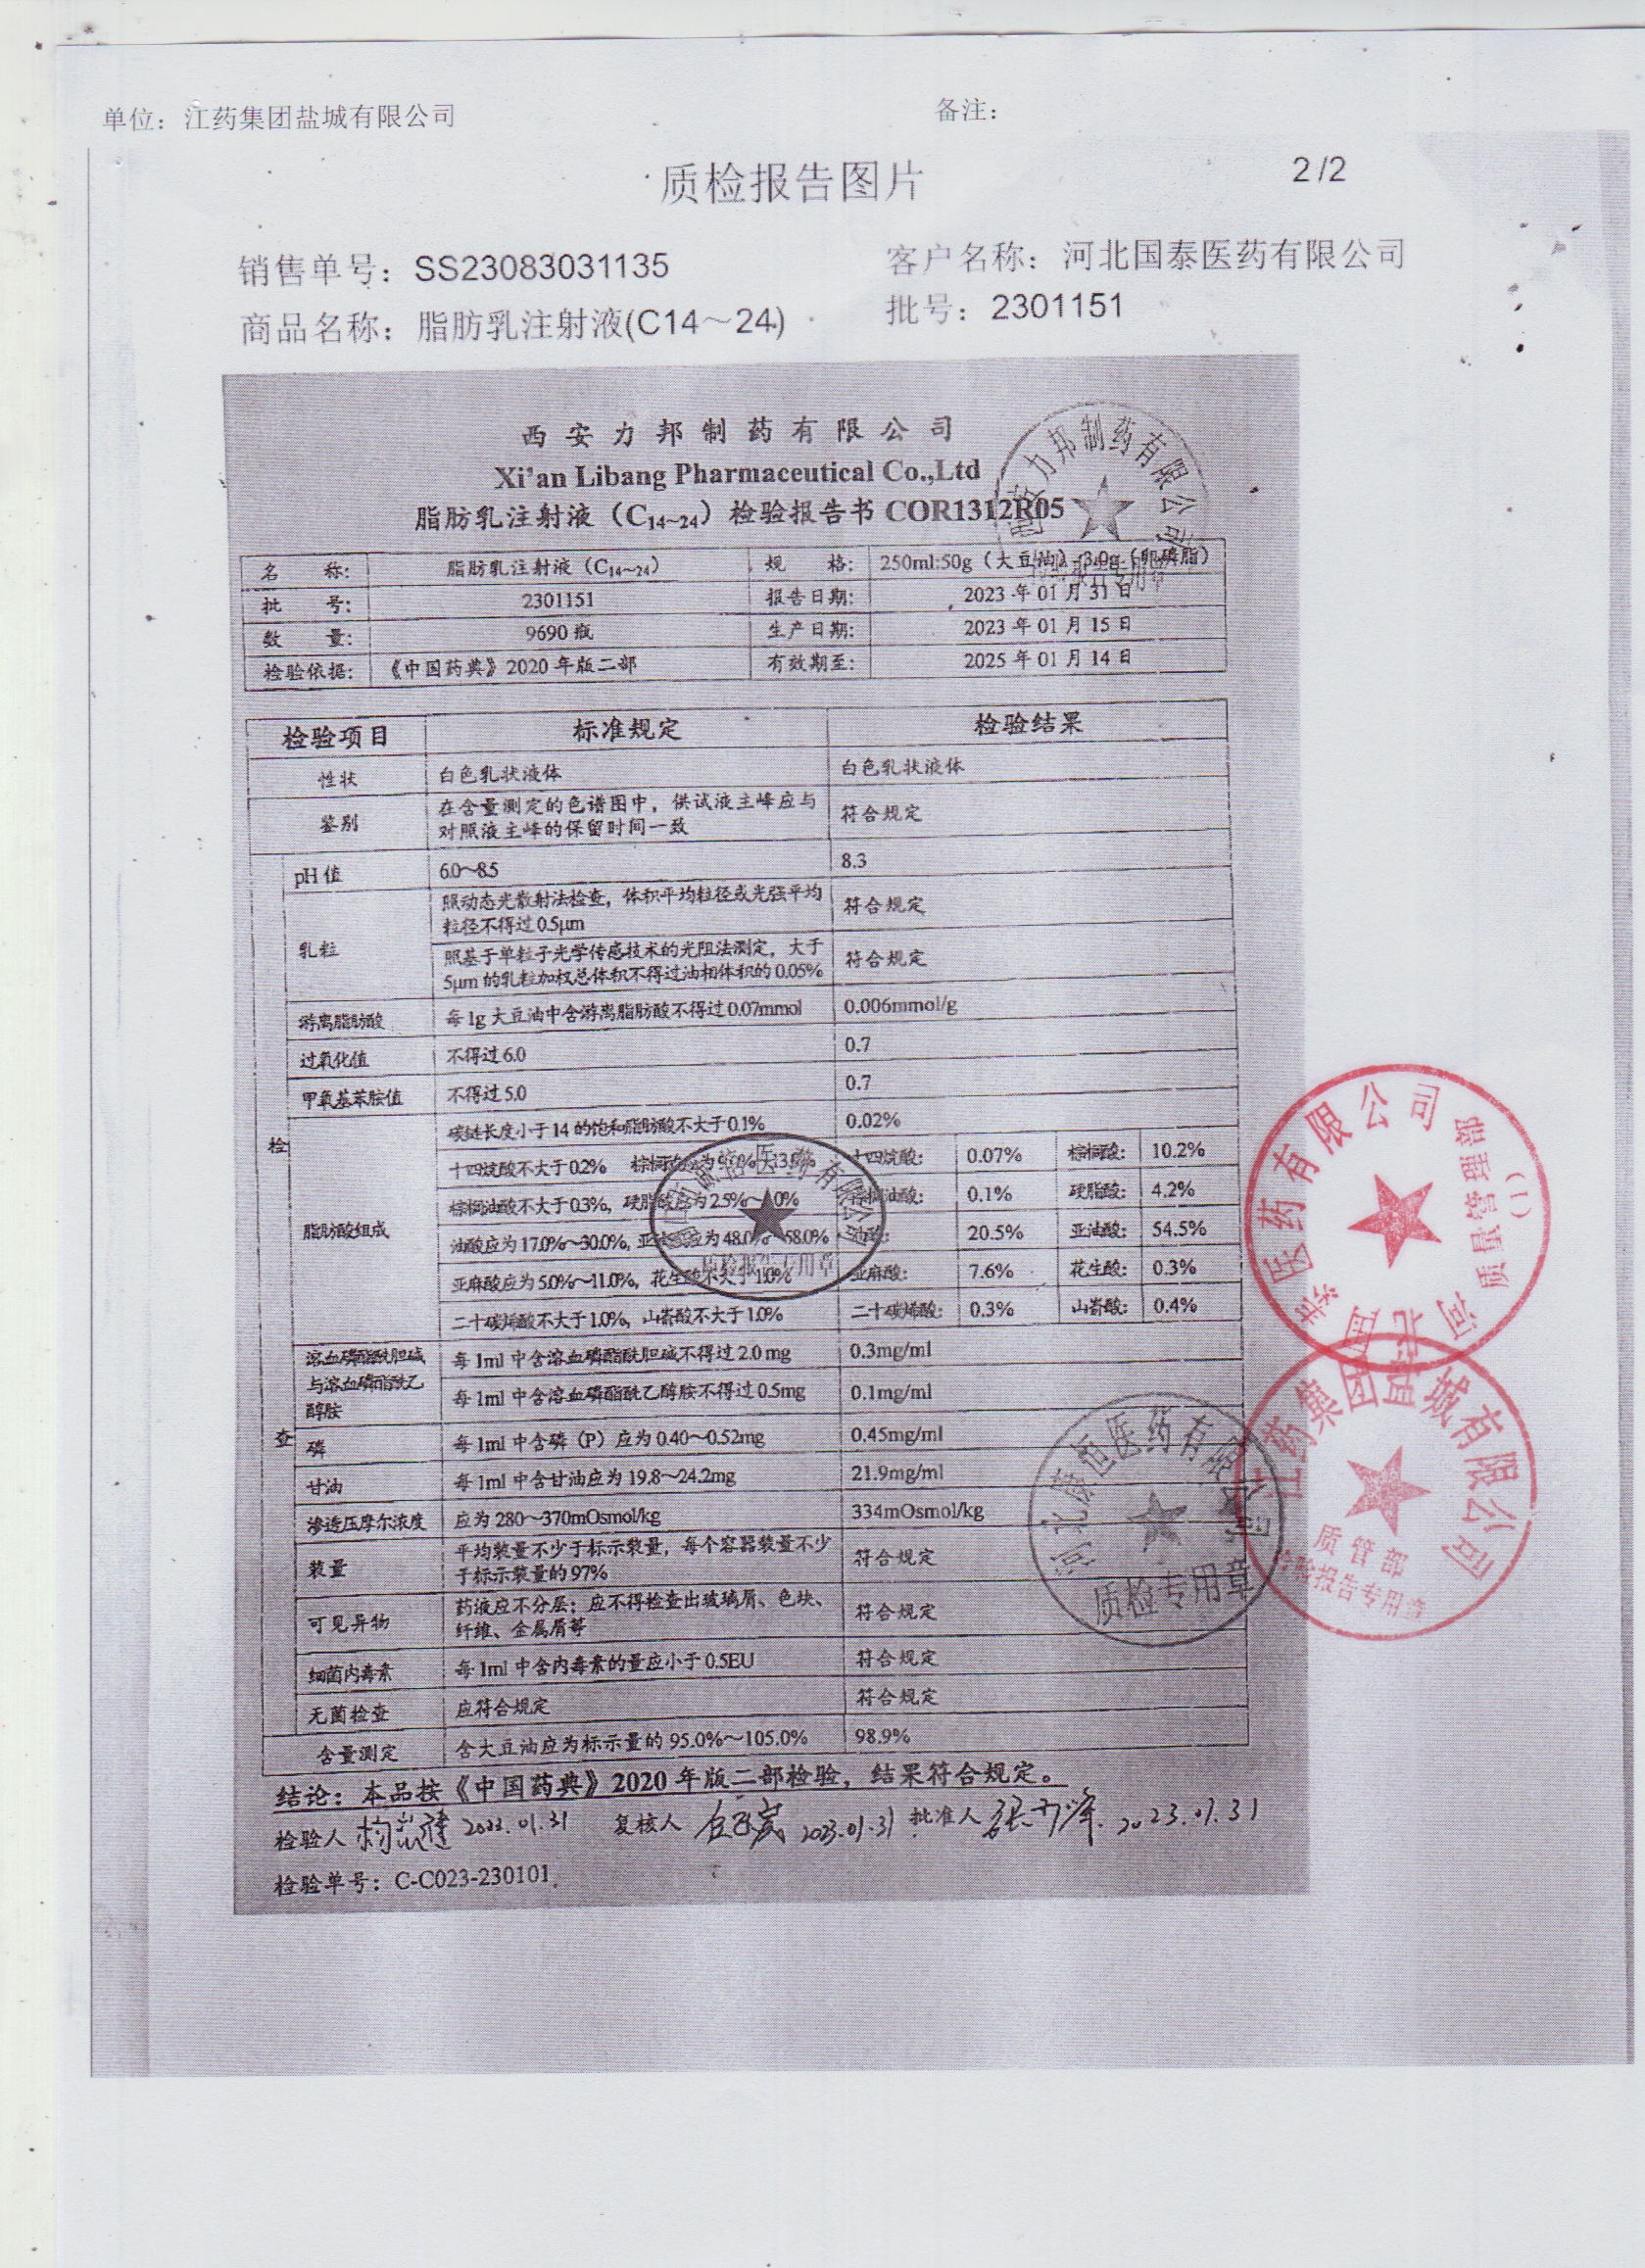 单位：江药集团盐城有限公司
备注：
质检报告图片
2/2
销售单号：SS23083031135
客户名称：河北国泰医药有限公司
商品名称：脂肪乳注射液(C14～24)
批号：2301151
西安力邦制药有限公司
Xi'an Libang Pharmaceutical Co.,Ltd
脂肪乳注射液（C14~24）检验报告书 COR1312R05
名 称： 脂肪乳注射液（C14~24） 规 格： 250ml:50g（大豆油）:3.0g（卵磷脂）
批 号： 2301151 报告日期： 2023 年 01 月 31 日
数 量： 9690 瓶 生产日期： 2023 年 01 月 15 日
检验依据： 《中国药典》2020 年版二部 有效期至： 2025 年 01 月 14 日
检验项目 标准规定 检验结果
性状 白色乳状液体 白色乳状液体
鉴别 在含量测定的色谱图中，供试液主峰应与
对照液主峰的保留时间一致 符合规定
检查
pH 值 6.0～8.5 8.3
乳粒 照动态光散射法检查，体积平均粒径或光强平均
粒径不得过 0.5μm 符合规定
照基于单粒子光学传感技术的光阻法测定，大于
5μm 的乳粒加权总体积不得过油相体积的 0.05% 符合规定
游离脂肪酸 每 1g 大豆油中含游离脂肪酸不得过 0.07mmol 0.006mmol/g
过氧化值 不得过 6.0 0.7
甲氧基苯胺值 不得过 5.0 0.7
脂肪酸组成 碳链长度小于 14 的饱和脂肪酸不大于 0.1% 0.02%
十四烷酸不大于 0.2% 十四烷酸： 0.07% 棕榈酸： 10.2%
棕榈油酸不大于 0.3%，硬脂酸应为 2.5%～ 棕榈油酸： 0.1% 硬脂酸： 4.2%
油酸应为 17.0%～30.0%，亚油酸应为 48.0%～58.0% 油酸： 20.5% 亚油酸： 54.5%
亚麻酸应为 5.0%～11.0%，花生酸不大于 1.0% 亚麻酸： 7.6% 花生酸： 0.3%
二十碳烯酸不大于 1.0%，山嵛酸不大于 1.0% 二十碳烯酸： 0.3% 山嵛酸： 0.4%
溶血磷酯酰胆碱
与溶血磷酯酰乙
醇胺
每 1ml 中含溶血磷酯酰胆碱不得过 2.0 mg 0.3mg/ml
每 1ml 中含溶血磷酯酰乙醇胺不得过 0.5mg 0.1mg/ml
磷 每 1ml 中含磷（P）应为 0.40～0.52mg 0.45mg/ml
甘油 每 1ml 中含甘油应为 19.8～24.2mg 21.9mg/ml
渗透压摩尔浓度 应为 280～370mOsmol/kg 334mOsmol/kg
装量 平均装量不少于标示装量，每个容器装量不少
于标示装量的 97% 符合规定
可见异物 药液应不分层；应不得检查出玻璃屑、色块、
纤维、金属屑等 符合规定
细菌内毒素 每 1ml 中含内毒素的量应小于 0.5EU 符合规定
无菌检查 应符合规定 符合规定
含量测定 含大豆油应为标示量的 95.0%～105.0% 98.9%
结论：本品按《中国药典》2020 年版二部检验，结果符合规定。
检验人 2023.01.31 复核人 2023.01.31 批准人 2023.01.31
检验单号：C-C023-230101
西安力邦制药有限公司
医药有限公司
质检报告专用章
医药有限公司
质量管理部
（1）
河北
江药集团盐城有限公司
质管部
检验报告专用章
恒医药有限公司
河北
质检专用章